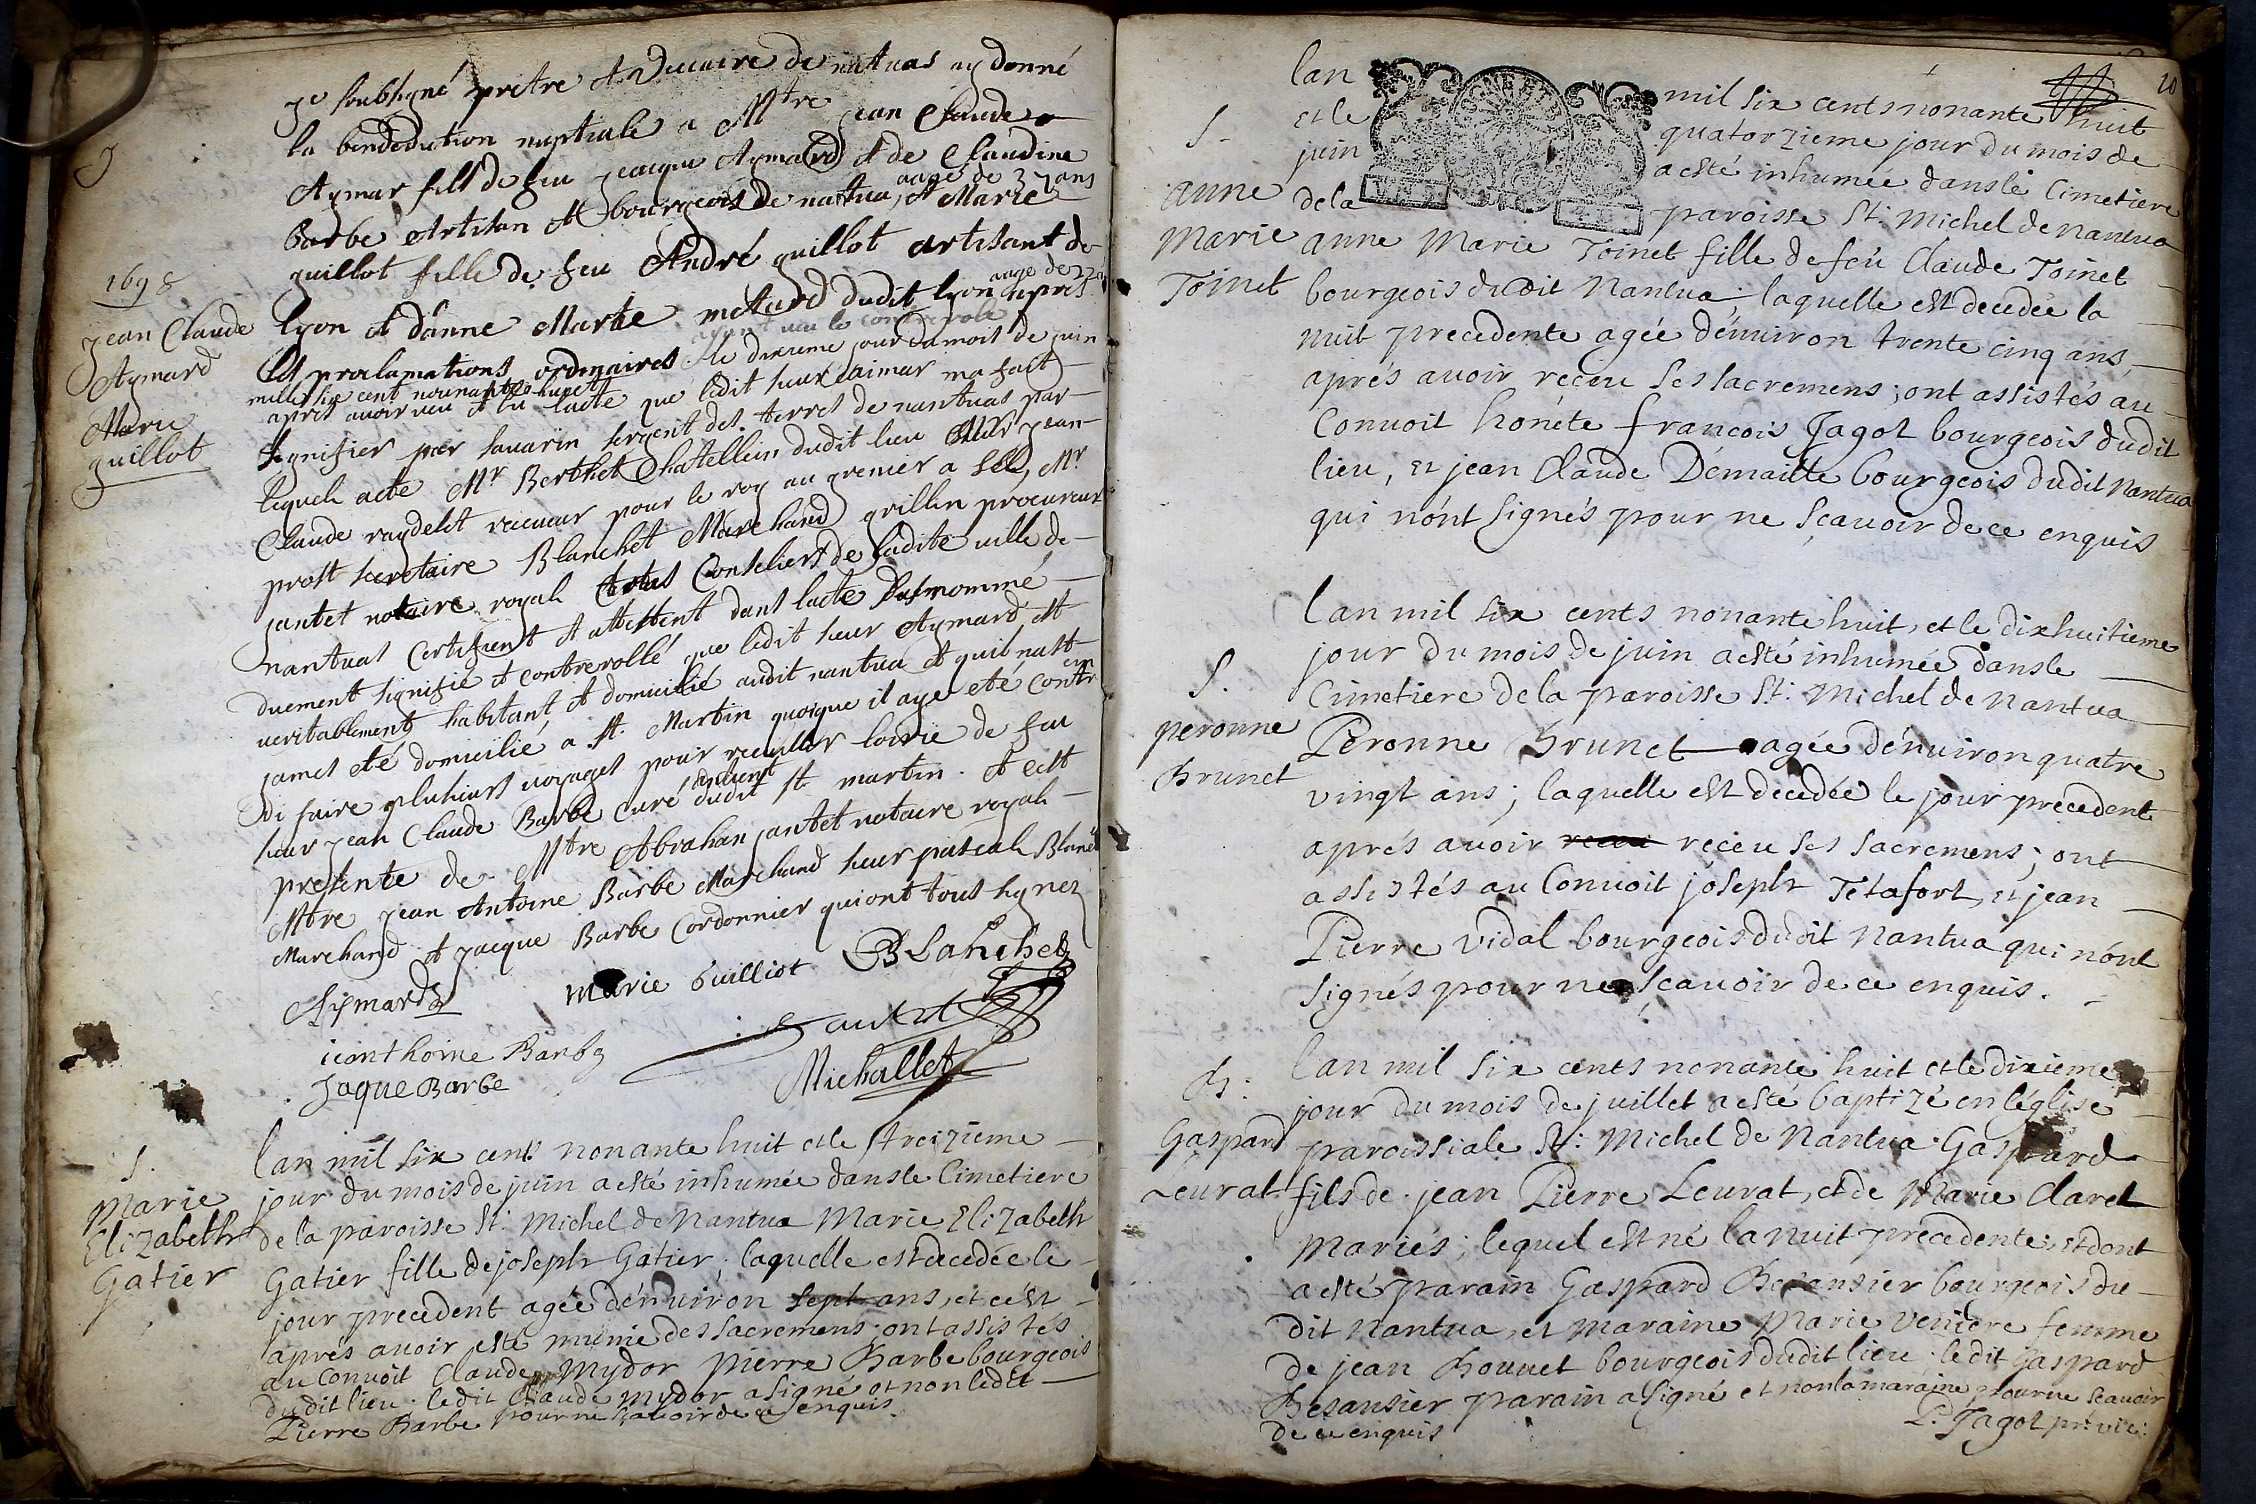 Je soubsigné pretre et Vicaire de nantuas ay donné
la benediction nuptiale a Mtre jean Claude
Aymar fils de feu jeacque Aymard et de Claudine
aage de 37 ans
Barbe Artisan et bourgeois de nantua, et Marie
guillot fille de feu André guillot artisant de
1698
jean Claude
Aymard
Marie
guillot
aage de
lyon et d'anne Marie metard dudit lyon apres
ayant veu le controrole
les proclamations ordinaires le dixieme jour du mois de juin
mille six cent nonante huit
apres avoir veu et lu lacte que ledit sieur aimar ma fait
signifier par savarin sergent des terres de nantuas par
lequel acte Mr Berthet Chatellein dudit lieu jean
Claude raydelet receveur pour le roy au grenier a sel, Mr
prost secretaire Blanchet Marchand grillen procureur
jantet notaire royal Conseliers de ladite ville de
nantuas Certifient et attestent dans lacte
duement signifié et controrollé que ledit sieur Aymard est
veritablement habitant, et domicilié audit nantua et quil nast
james eté domicilié a st. Martin quoique il aye eté contr
di faire plusieurs voyages pour recuillir loirie de feu
sieur jean Claude Barbe curé dudit st martin. et cest
presente de Mtre Abrahan jantet notaire royal
Mtre jean Antoine Barbe Marchand sieur pascal Blanc
Marchand et jacque Barbe Cordonnier qui ont tous signez
Aymard
marie Guilliot
BLanchet
jantet
ieanthoine Barbe
Jaque Barbe
Michallet
S.
Marie
Elizabeth
Gatier
lan mil six cents nonante huit et le treizieme
jour du mois de juin a esté inhumée dans le Cimetiere
de la paroisse St. Michel de Nantua Marie Elizabeth
Gatier fille de joseph Gatier, laquelle est decedée le
jour precedent agée d'enuiron sept ans, et c'est
apres auoir esté munie des sacremens; ont assistés
au Conuoit Claude Mydor Pierre Barbe bourgeois
du dit lieu. ledit Claude Mydor a signé et non ledit
Pierre Barbe pour ne sçauoir de ce enquis.
20
S.
anne
Marie
Toinet
lan mil six cents nonante huit
et le quatorzieme jour du mois de
juin a esté inhumée dans le Cimetiere
de la paroisse St. Michel de Nantua
anne Marie Toinet fille de feu Claude Toinet
bourgeois du dit Nantua; laquelle est decedée la
nuit precedente agée d'enuiron trente cinq ans,
aprés auoir receu ses sacremens; ont assistés au
Conuoit honéte francois Jagot bourgeois dudit
lieu, et jean Claude Démaille bourgeois dudit Nantua
qui n'ont signés pour ne sçauoir de ce enquis
S.
peronne
Brunet
lan mil six cents nonante huit, et le dixhuitieme
jour du mois de juin a esté inhumée dans le
Cimetiere de la paroisse St. Michel de Nantua
Peronne Brunet agée d'enuiron quatre
vingt ans; laquelle est decedée le jour precedent
aprés auoir receu receu ses sacremens; ont
assistés au Conuoit joseph Tétafort, et jean
Pierre Vidal bourgeois dudit Nantua qui n'ont
signés pour ne sçauoir de ce enquis.
B.
Gaspard
Leurat
lan mil six cents nonante huit et le dixieme
jour du mois de juillet a esté baptizé en l'église
paroissiale St. Michel de Nantua Gaspard
fils de jean Pierre Leurat, et de Marie Claret
mariés; lequel est né la nuit precedente, et dont
a esté parain Gaspard Besansier bourgeois du
dit Nantua, et maraine Marie Veniere femme
de jean Bouuet bourgeois dudit lieu. le dit Gaspard
Besansier parain a signé et non la maraine pour ne sçauoir
de ce enquis
P. Jagot pr. vic: